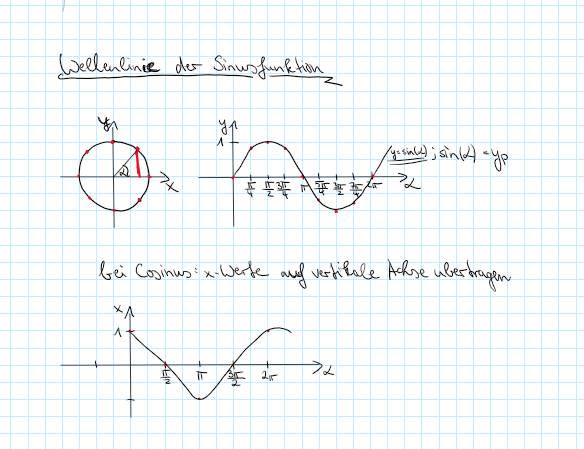 Wellenlinie der Sinusfunktion
y
α
x
y
1
π/4 π/2 3π/4 π 5π/4 3π/2 7π/4 2π α
y=sin(α) ; sin(α) = yp
bei Cosinus: x-Werte auf vertikale Achse übertragen
x
1
π/2 π 3π/2 2π α